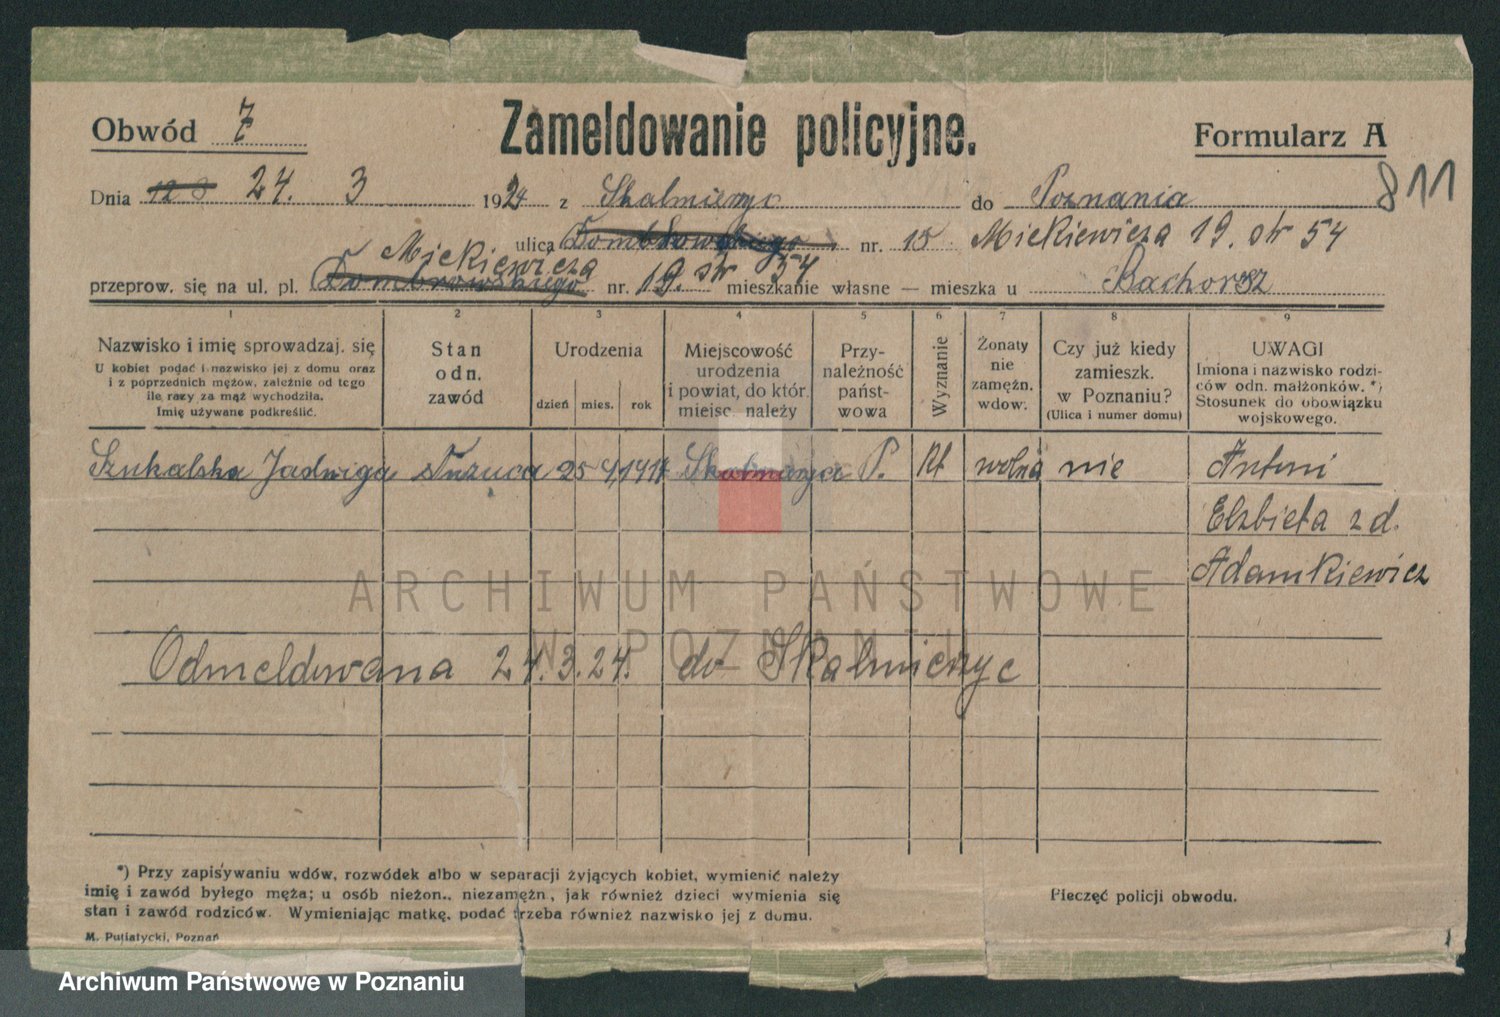 Obwód 7 Zameldowanie policyjne. Formularz A
811
Dnia 12 3 24. 3 1924 z Skalmierzyc do Poznania
ulica Dombrowskiego nr. 15 Mickiewicza 19. str 54
Mickiewicza
przeprow. się na ul. pl. Dombrowskiego nr. 19. str 54 mieszkanie własne — mieszka u
1 2 3 4 5 6 7 8 9
Nazwisko i imię sprowadzaj. się
U kobiet podać i nazwisko jej z domu oraz
i z poprzednich mężów, zależnie od tego
ile razy za mąż wychodziła.
Imię używane podkreślić.
Stan
odn.
zawód
Urodzenia
dzień mies. rok
Miejscowość
urodzenia
i powiat, do któr.
miejsc. należy
Przy-
należność
państ-
wowa
Wyznanie
Żonaty
nie
zamężn.
wdow.
Czy już kiedy
zamieszk.
w Poznaniu?
(Ulica i numer domu)
UWAGI
Imiona i nazwisko rodzi-
ców odn. małżonków. *)
Stosunek do obowiązku
wojskowego.
Szukalska Jadwiga 25 P. Kt wolna nie Antoni
Elzbieta z d.
Adamkiewicz
Odmeldowana 24.3.24. do Skalmierzyc
*) Przy zapisywaniu wdów, rozwódek albo w separacji żyjących kobiet, wymienić należy
imię i zawód byłego męża; u osób nieżon., niezamężn, jak również dzieci wymienia się
stan i zawód rodziców. Wymieniając matkę, podać trzeba również nazwisko jej z domu.
Pieczęć policji obwodu.
M. Putiatycki, Poznań
ARCHIWUM PAŃSTWOWE
W POZNANIU
Archiwum Państwowe w Poznaniu